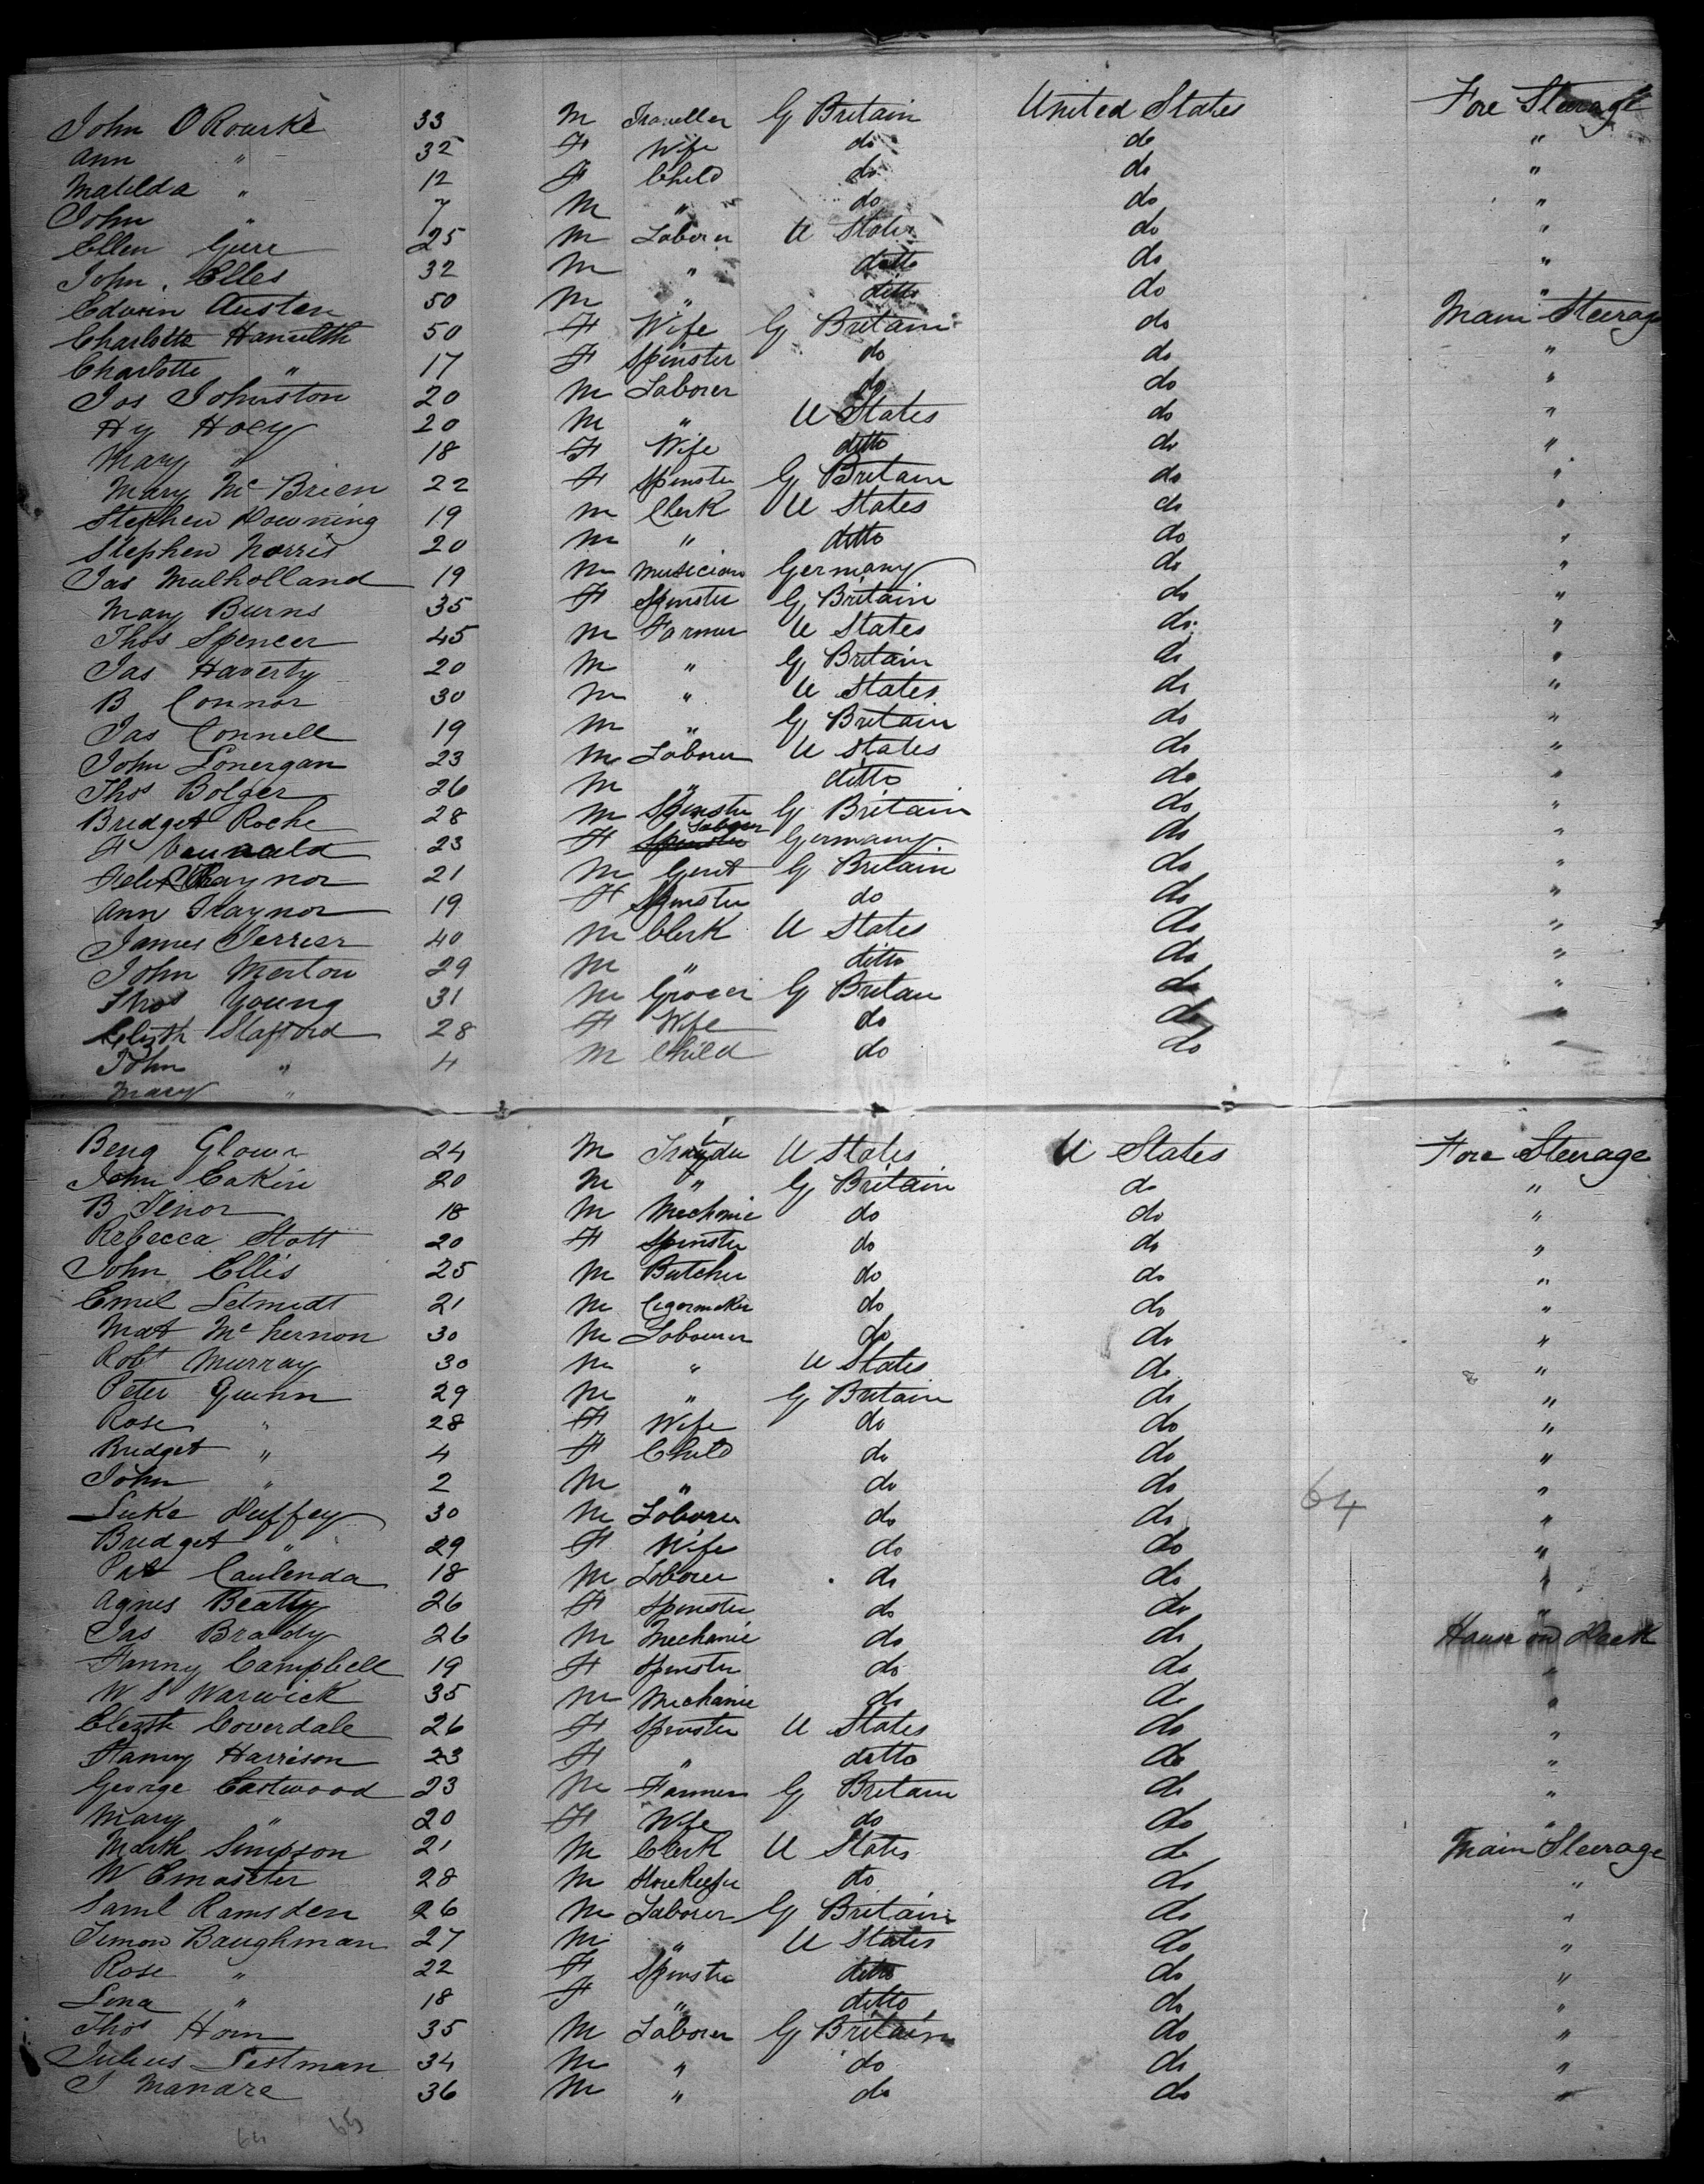 John O Rourke 33 M Traveller G Britain United States Fore Steerage
Ann " 32 F Wife do do "
Matilda " 12 F Child do do "
John " 7 M " do do "
Ellen 25 M Laborer U States do "
John Elles 32 M " ditto do "
Edwin Austen 50 M " ditto do "
Charlotte 50 F Wife G Britain do Main Steerage
Charlotte " 17 F Spinster do do "
Jos Johnston 20 M Laborer do do "
Hy Hoey 20 M " U States do "
Mary " 18 F Wife ditto do "
Mary Mc Brien 22 F Spinster G Britain do "
Stephen Downing 19 M Clerk U States do "
Stephen Norris 20 M " ditto do "
Jas Mulholland 19 M Musician Germany do "
Mary Burns 35 F Spinster G Britain do "
Thos Spencer 45 M Farmer U States do "
Jas Haverty 20 M " G Britain do "
B Connor 30 M " U States do "
Jas Connell 19 M " G Britain do "
John Lonergan 23 M Laborer U States do "
Thos Bolger 26 M " ditto do "
Bridget Roche 28 M Spinster G Britain do "
F 23 F Spinster Laborer Germany do "
Felix Traynor 21 M Gent G Britain do "
Ann Traynor 19 F Spinster do do "
James Ferrier 40 M Clerk U States do "
John Merton 29 M " ditto do "
Thos Young 31 M Grocer G Britain do "
Elizth Stafford 28 F Wife do do "
John " 4 M Child do do "
Mary "
Benj Glown 24 M U States U States Fore Steerage
John Eakin 20 M " G Britain do "
B Tenor 18 M Mechanic do do "
Rebecca Stott 20 F Spinster do do "
John Ellis 25 M Butcher do do "
Emil Letmidt 21 M Cigarmaker do do "
Mat Mc hernon 30 M Labourer do do "
Robt Murray 30 M " U States do "
Peter Quinn 29 M " G Britain do "
Rose " 28 F Wife do do "
Bridget " 4 F Child do do "
John " 2 M " do do "
64
Luke Duffey 30 M Laborer do do "
Bridget " 29 F Wife do do "
Pat Caulenda 18 M Laborer do do "
Agnes Beatty 26 F Spinster do do "
Jas Brady 26 M Mechanic do do House on Deck
Fanny Campbell 19 F Spinster do do "
W S Warwick 35 M Mechanic do do "
Elizth Coverdale 26 F Spinster U States do "
Fanny Harrison 23 F " ditto do "
George Eastwood 23 M Farmer G Britain do "
Mary " 20 F Wife do do "
Marth Simpson 21 M Clerk U States do Main Steerage
W Emaster 28 M StoreKeeper do do "
Saml Ramsden 26 M Laborer G Britain do "
Simon Baughman 27 M " U States do "
Rose " 22 F Spinster ditto do "
Lena " 18 F " ditto do "
Thos Horn 35 M Laborer G Britain do "
Julius Lestman 34 M " do do "
J Manare 36 M " do do "
64 65